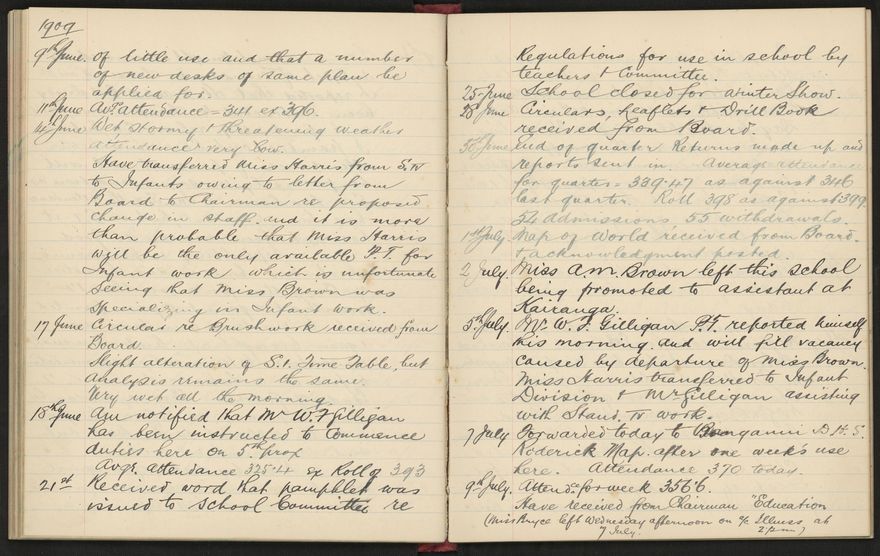 1909
9th June. of little use and that a number
of new desks of same plan be
applied for.
11th June Avge attendance = 341 ex 396.
14th June Wet, stormy & threatening weather
attendance very low.
Have transferred Miss Harris from S. IV
to Infants owing to letter from
Board to Chairman re proposed
change in staff. and it is more
than probable that Miss Harris
will be the only available P.T. for
Infant work which is unfortunate
seeing that Miss Brown was
specializing in Infant work.
17 June Circular re Brushwork received from
Board.
Slight alteration of S.1. Time Table, but
Analysis remains the same.
Very wet all the morning.
18th June Am notified that Mr W. F Gilligan
has been instructed to commence
duties here on 5th prox
Avge. attendance 325.4 ex Roll of 393
21st Received word that pamphlet was
issued to School Committee re
Regulations for use in school by
teachers & Committee.
25 June School closed for Winter Show.
28 June Circulars, leaflets & Drill Book
received from Board.
30th June End of quarter Returns made up and
reports sent in. Average attendance
for quarter = 339.47 as against 346
last quarter. Roll 398 as against 399.
54 admissions 55 withdrawals.
1st July Map of World received from Board.
& acknowledgment posted.
2 July. Miss A.M. Brown left this school
being promoted to assistant at
Kairanga.
5th July. Mr. W. F. Gilligan P.T. reported himself
this morning. and will fill vacancy
caused by departure of Miss Brown.
Miss Harris transferred to Infant
Division & Mr Gilligan assisting
with Stand. IV work.
7 July Forwarded today to Wanganui D.H.S.
Roderick Map. after one week's use
here. Attendance 370 today.
9th July. Attendce for week 356.6.
Have received from Chairman "Education
(Miss Bryce left Wednesday afternoon on a/c Illness at
7 July. 2 p.m)